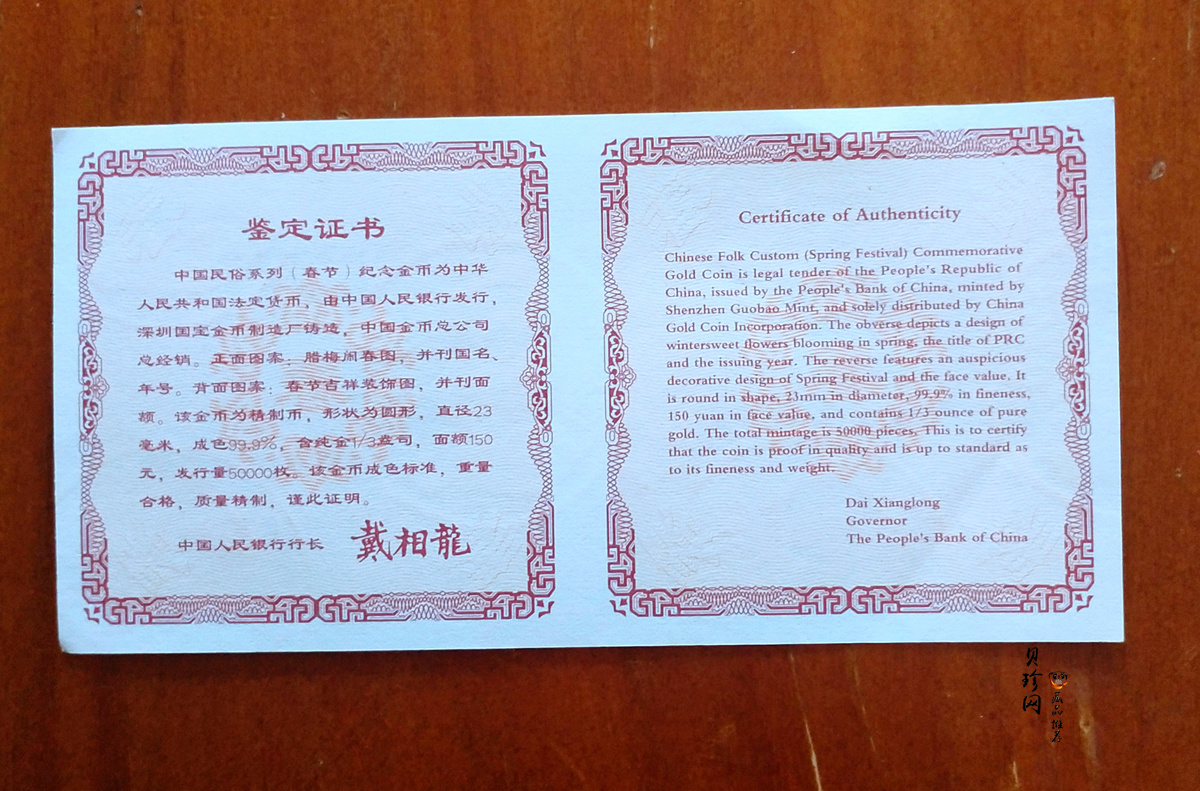 鉴定证书
中国民俗系列（春节）纪念金币为中华
人民共和国法定货币，由中国人民银行发行，
深圳国宝金币制造厂铸造，中国金币总公司
总经销。正面图案：腊梅闹春图，并刊国名、
年号。背面图案：春节吉祥装饰图，并刊面
额。该金币为精制币，形状为圆形，直径23
毫米，成色99.9%，含纯金1/3盎司，面额150
元，发行量50000枚。该金币成色标准，重量
合格，质量精制，谨此证明。
中国人民银行行长 戴相龍
Certificate of Authenticity
Chinese Folk Custom (Spring Festival) Commemorative
Gold Coin is legal tender of the People's Republic of
China, issued by the People's Bank of China, minted by
Shenzhen Guobao Mint, and solely distributed by China
Gold Coin Incorporation. The obverse depicts a design of
wintersweet flowers blooming in spring, the title of PRC
and the issuing year. The reverse features an auspicious
decorative design of Spring Festival and the face value. It
is round in shape, 23mm in diameter, 99.9% in fineness,
150 yuan in face value, and contains 1/3 ounce of pure
gold. The total mintage is 50000 pieces. This is to certify
that the coin is proof in quality and is up to standard as
to its fineness and weight.
Dai Xianglong
Governor
The People's Bank of China
贝珍网
藏品推荐